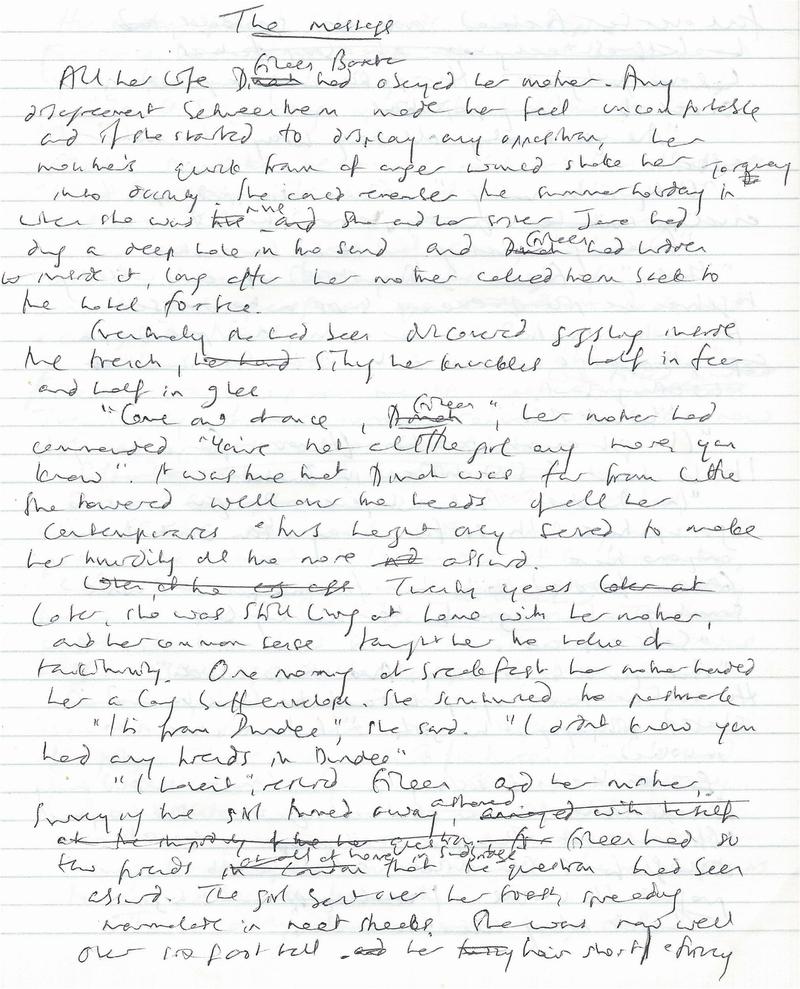 The message
Eileen Barker
All her life Dinah had obeyed her mother. Any
disagreement between them made her feel uncomfortable
and if she started to display any opposition, her
mother's quick frown of anger would shake her
Torquay
into docility. She could remember the summer holiday in
when she was five and She and her sister Jane had
dug a deep hole in the sand and Dinah Eileen had hidden
inside it, long after her mother called them back to
the hotel for tea.
Eventually she had been discovered giggling inside
the trench, her hand biting her knuckles half in fear
and half in glee
"Come out at once, Dinah Eileen", her mother had
commanded "You're not a little girl any more, you
know". It was true that Dinah was far from little
She towered well over the heads of all her
contemporaries & this height only served to make
her timidity all the more and absurd.
Later, at the age of Twenty years later at
later, she was still living at home with her mother,
and her common sense taught her the value of
taciturnity. One morning at breakfast her mother handed
her a long buff envelope. She scrutinised the postmark
"It's from Dundee", she said. "I didn't know you
had any friends in Dundee"
"I haven't", Eileen and her mother,
the girl turned away, ashamed annoyed with herself
at the stupidity of the her question. Eileen had so
few friends in London at all at home in that the question had been
absurd. The girl bent over her toast, spreading
marmalade in neat She was now well
over six foot tall and her hair short & frizzy